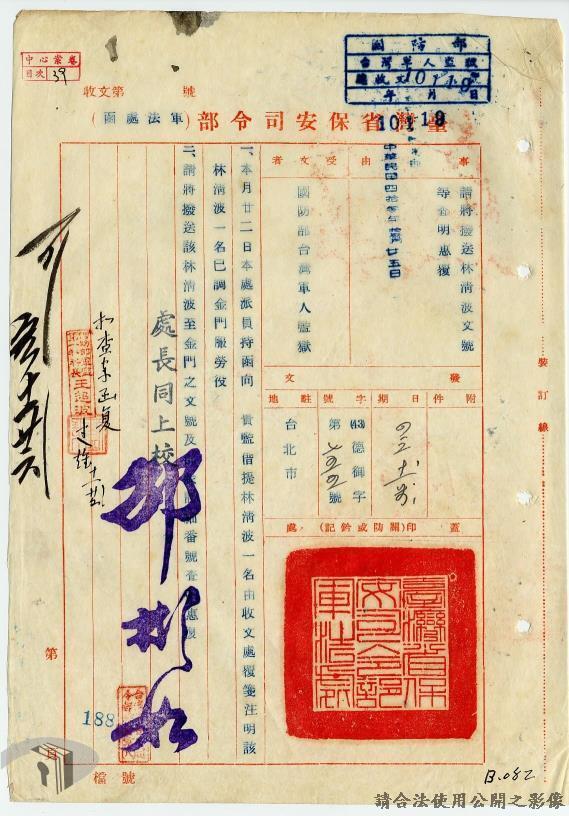 中心案卷
目次 39
國防部
台灣軍人監獄
總收文 1011 號
年 月 日
收文第 號
臺灣省保安司令部（軍法處函）
10118
中華民國四拾叁年拾壹月廿五日
事由
請將撥送林清波文號
等查明惠復
受文者
國防部台灣軍人監獄
發文
附件
日期
字號
駐地
(43)德御字
第 號
台北市
蓋印(關防或鈐記)處
臺灣省保安司令部軍法處
一、本月廿二日本處派員持函向 貴監借提林清波一名由收文處覆箋注明該
林清波一名已調金門服勞役
二、請將撥送該林清波至金門之文號及 番號查 惠復
處長同上校
王超波
裝訂線
188
第 頁
檔號
B.082
請合法使用公開之影像